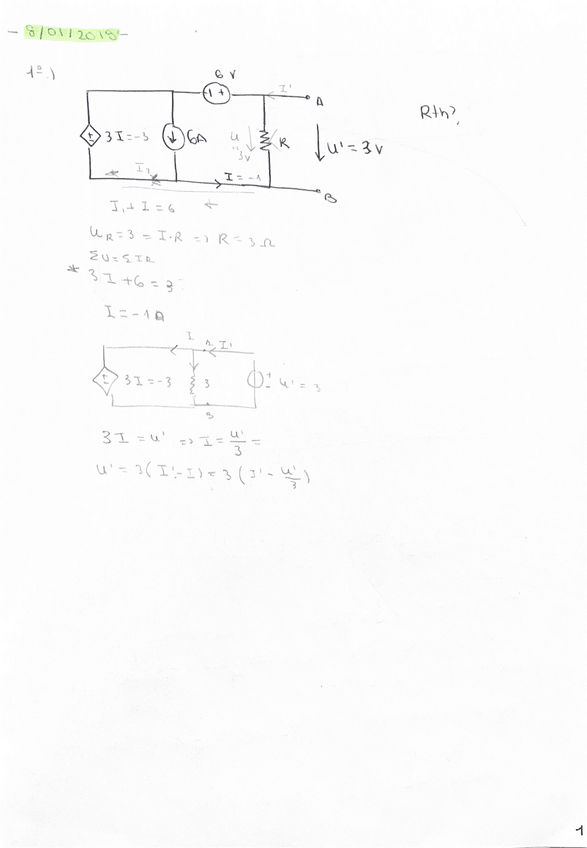 - 8/01/2018 -
1º.)
6 V
- +
I'
A
Rth?
3I=-3
6A
U
"
3V
R
U' = 3V
I₁
I=-1
B
I₁ + I = 6
U_R = 3 = I·R => R = 3 Ω
ΣU = ΣIR
* 3I + 6 = 3
I = -1 A
I
A
I'
3I = -3
3
+
-
U' = 3
B
3I = U' => I = U'/3 =
U' = 3(I' - I) = 3(I' - U'/3)
1